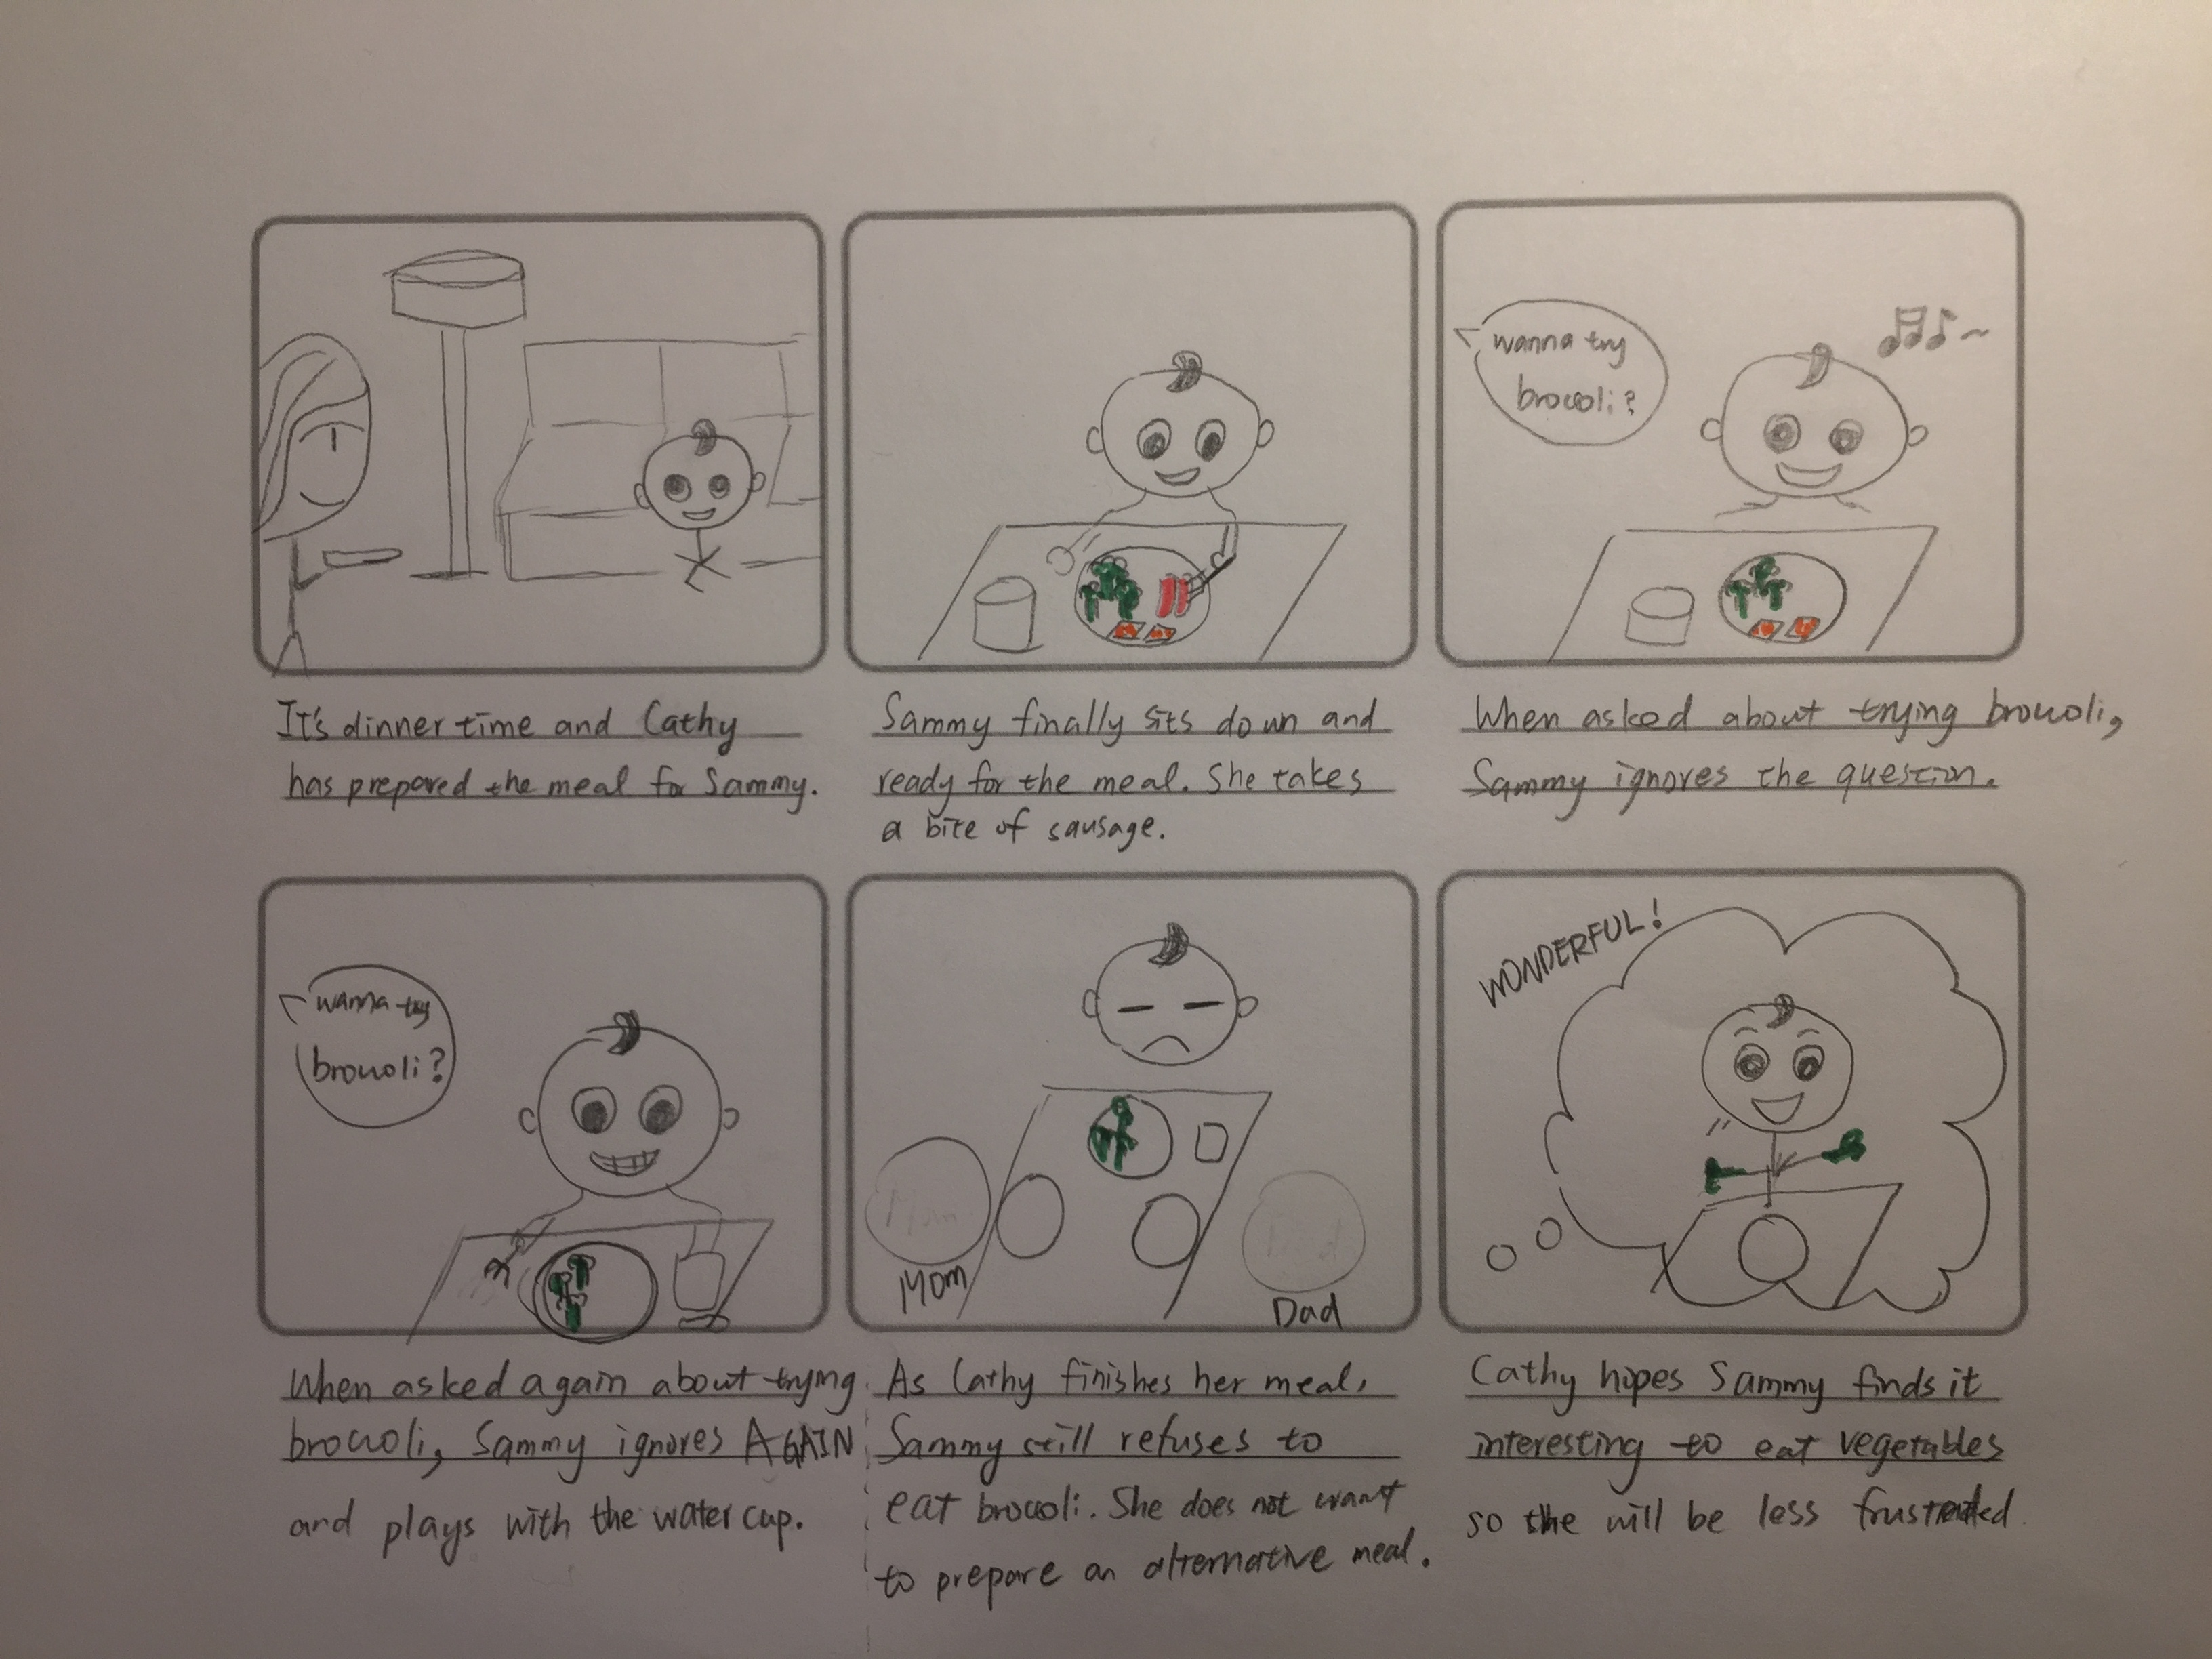 wanna try
broccoli?
It's dinner time and Cathy
has prepared the meal for Sammy.
Sammy finally sits down and
ready for the meal. She takes
a bite of sausage.
When asked about trying broccoli,
Sammy ignores the question.
wanna try
broccoli?
Mom
Dad
WONDERFUL!
When asked again about trying
broccoli, Sammy ignores AGAIN
and plays with the water cup.
As Cathy finishes her meal,
Sammy still refuses to
eat broccoli. She does not want
to prepare an alternative meal.
Cathy hopes Sammy finds it
interesting to eat vegetables
so she will be less frustrated.